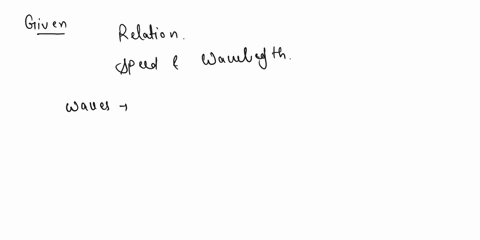 Given
Relation.
Speed & Wavelength.
Waves →